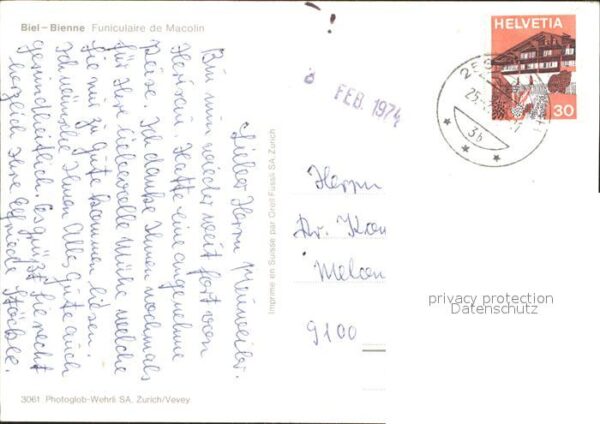 Biel – Bienne Funiculaire de Macolin
HELVETIA
30
25
3b
FEB. 1974
Lieber Herrn
Bin nun wieder weit fort von
Herisau. Hatte eine angenehme
Reise. Ich danke Ihnen nochmals
für Ihre liebevolle Mühe welche
Sie mir zu gute kommen liesen.
Ich wünsche Ihnen Alles Gute auch
gesundheitlich. Es grüßt Sie recht
herzlich Ihre Elfriede Stäbble.
Imprimé en Suisse par Orell Füssli SA, Zurich
Herrn
Dr. Kon
9100
privacy protection
Datenschutz
3061 Photoglob-Wehrli SA, Zurich/Vevey